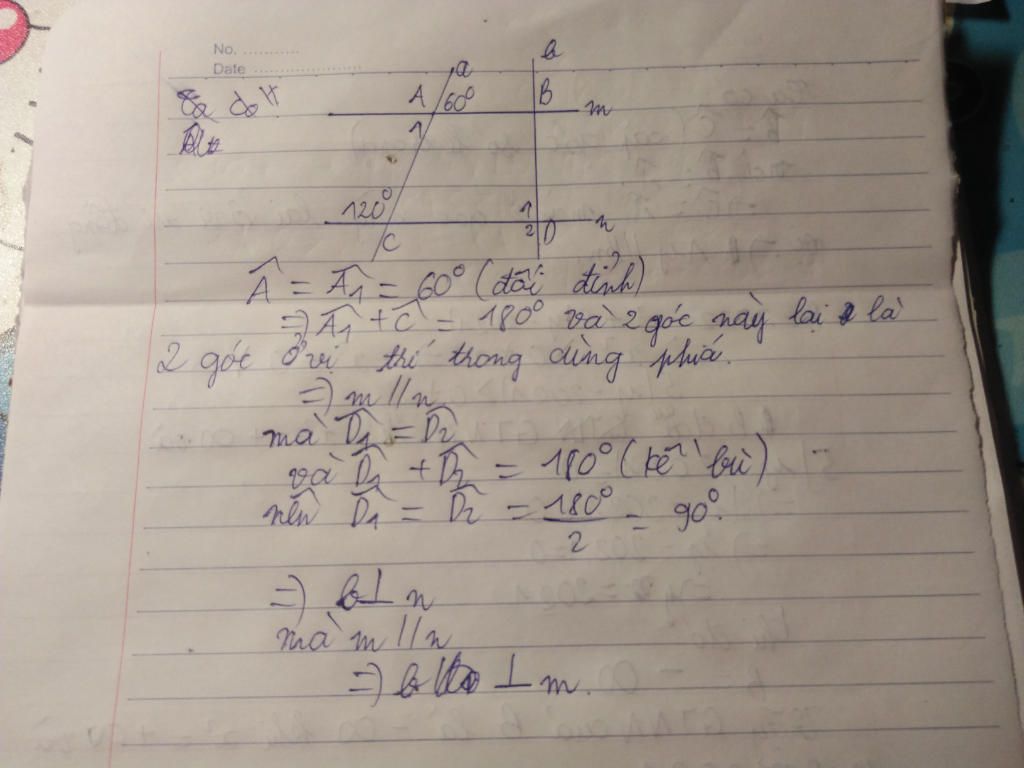 No. ...........
Date ......................
a
b
A
60°
B
m
1
120°
1
2
D
n
C
Â = Â1 = 60° (đối đỉnh)
=> Â1 + Ĉ = 180° và 2 góc này lại là
2 góc ở vị trí trong cùng phía.
=> m // n
mà D̂1 = D̂2
và D̂1 + D̂2 = 180° (kề bù)
nên D̂1 = D̂2 = 180°/2 = 90°.
=> b ⊥ n
mà m // n
=> b ⊥ m.